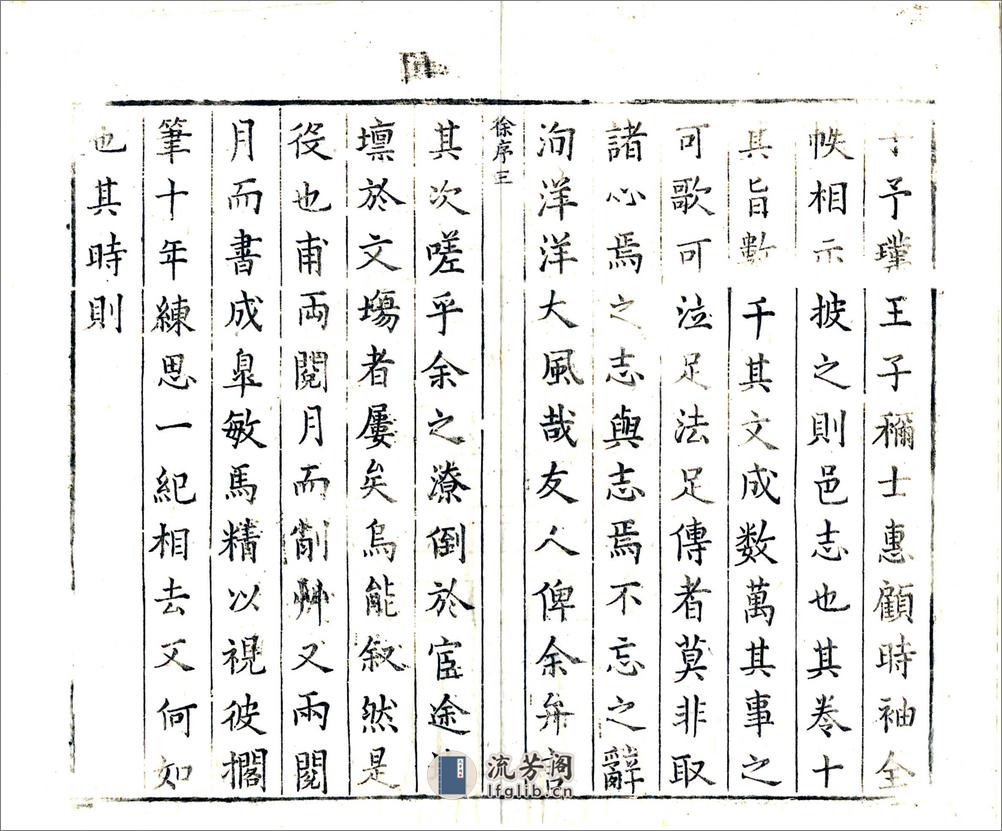 予瑾王子禰士惠顧時袖全
帙相示披之則邑志也其卷十
其旨數千其文成数萬其事之
可歌可泣足法足傳者莫非取
諸心焉之志與志焉不忘之辭
洵洋洋大風哉友人俾余弁
徐序三
其次嗟乎余之潦倒於宦途
壇於文塲者屢矣烏能叙然是
役也甫両閱月而削艸又兩閱
月而書成臯敏馬精以視彼擱
筆十年練思一紀相去又何如
也其時則
流芳阁
lfglib.cn